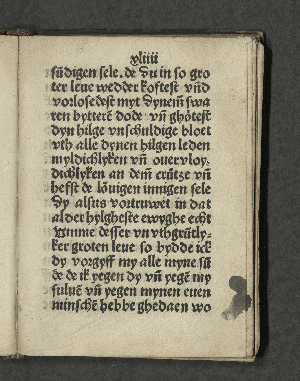 xliiii
sūdigen sele. de du in so gro
ter leue wedder koftest vnd
vorlosedest myt dynem swa
ren bytterē dode vn̄ ghötest
dyn hilge vnschuldige bloet
vth alle dynen hilgen leden
myldichlyken vn̄ ouervloy
dichlyken an dem crütze vn̄
hefst de
innigen sele
dy alsus vortruwet in dat
alder hylgheste ewyghe echt
vmme desser vnvthgrütly
ker groten leue so bydde ick
dy vorgyff my alle myne sū
de de ik yegen dy vn̄ yegē my
suluē vn̄ yegen mynen euen
minschē hebbe ghedaen wo